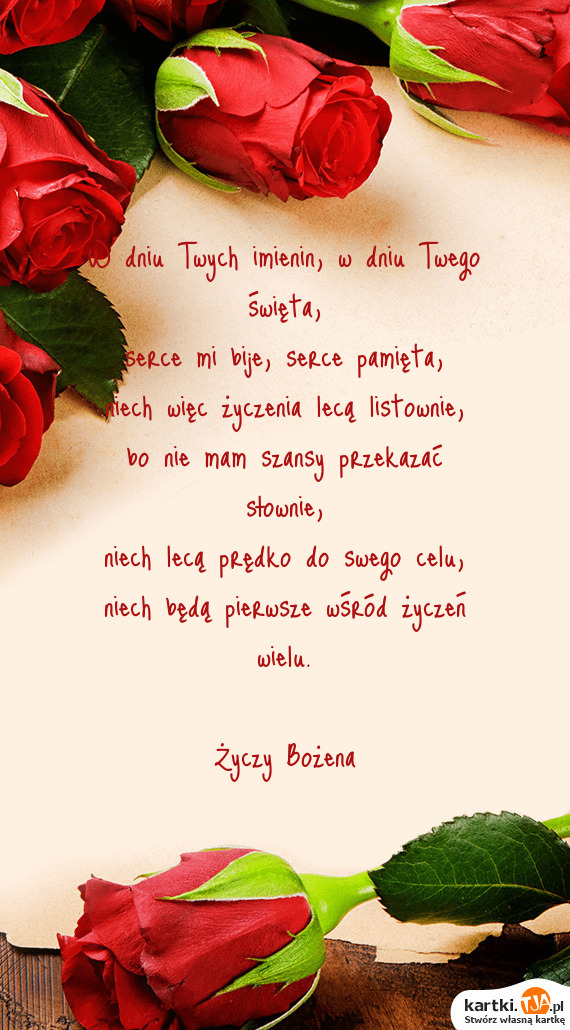 W dniu Twych imienin, w dniu Twego
święta,
serce mi bije, serce pamięta,
niech więc życzenia lecą listownie,
bo nie mam szansy przekazać
słownie,
niech lecą prędko do swego celu,
niech będą pierwsze wśród życzeń
wielu.
Życzy Bożena
kartki.TJA.pl
Stwórz własną kartkę